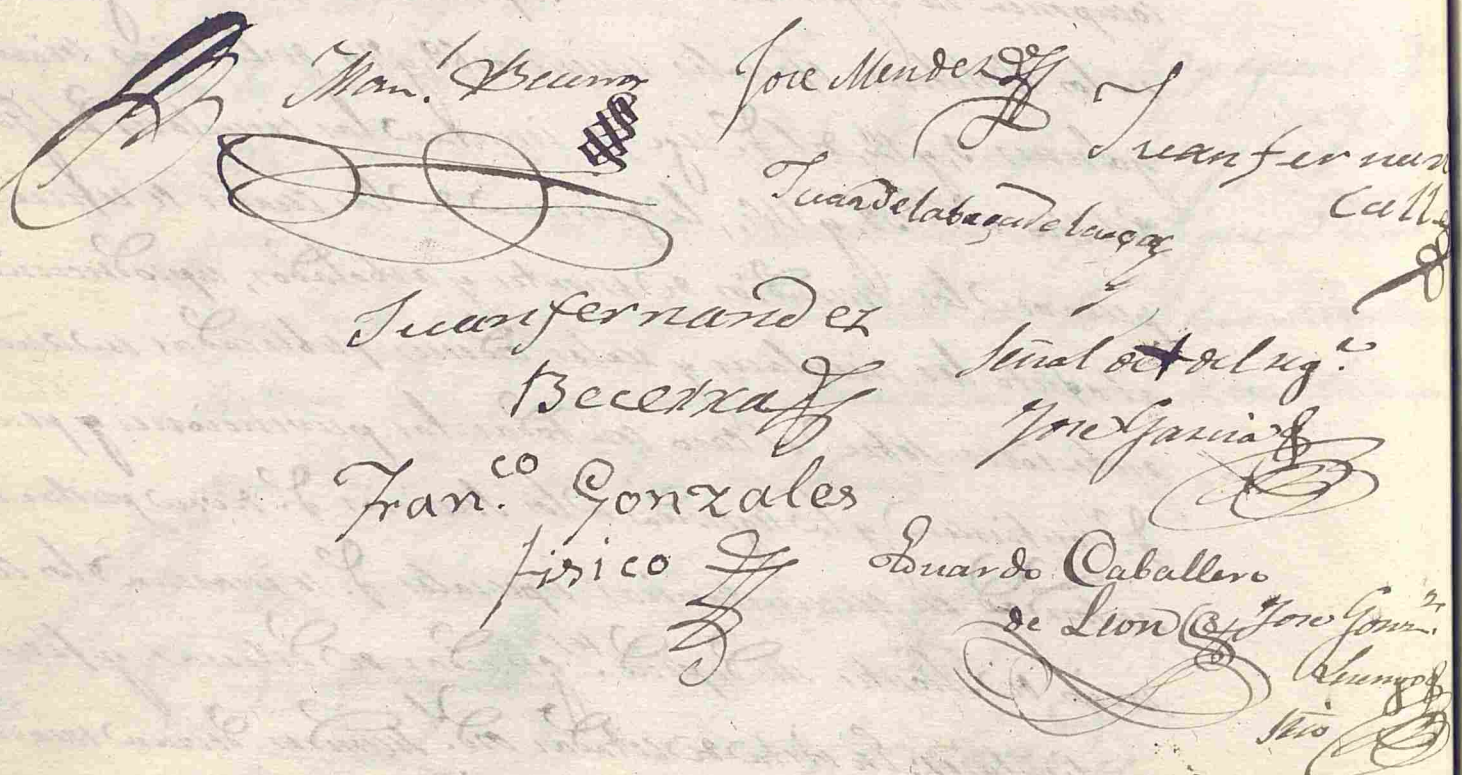 Man.l Becerra
Jose Mendez
Juan fernan
Calle
Juan de la bega de la
Juan fernandez
Becerra
Señal de + del reg.r
Jose Garcia
Fran.co Gonzales
fisico
Eduardo Caballero
de Leon
Jose Gonz.z
Luengo
Srio